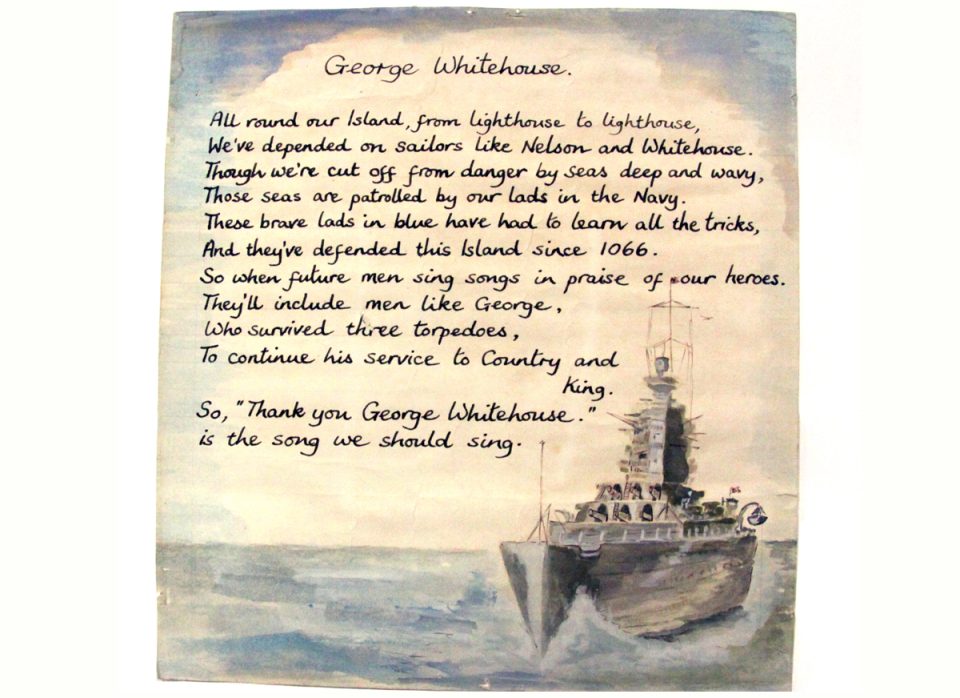 George Whitehouse.
All round our Island, from lighthouse to lighthouse,
We've depended on sailors like Nelson and Whitehouse.
Though we're cut off from danger by seas deep and wavy,
Those seas are patrolled by our lads in the Navy.
These brave lads in blue have had to learn all the tricks,
And they've defended this Island since 1066.
So when future men sing songs in praise of our heroes.
They'll include men like George,
Who survived three torpedoes,
To continue his service to Country and
King.
So, "Thank you George Whitehouse."
is the song we should sing.